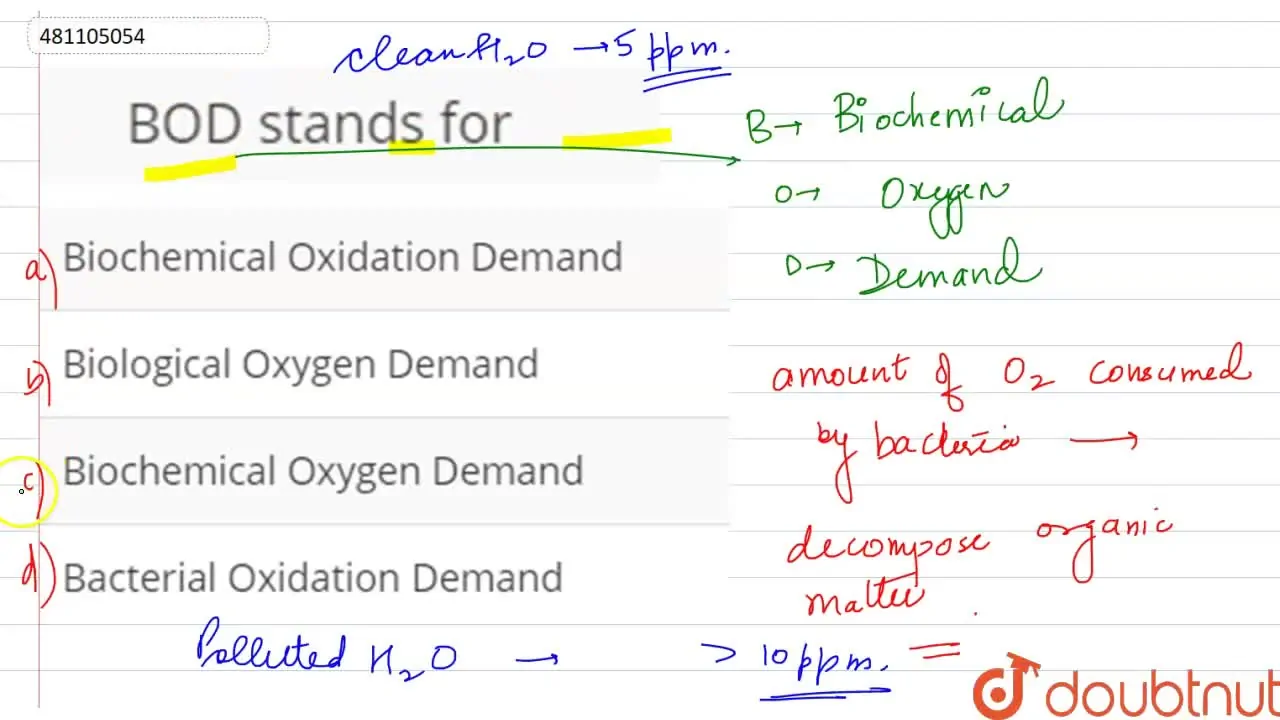 481105054
clean H₂O → 5 ppm.
BOD stands for
B→ Biochemical
O→ Oxygen
D→ Demand
a) Biochemical Oxidation Demand
b) Biological Oxygen Demand
c) Biochemical Oxygen Demand
d) Bacterial Oxidation Demand
amount of O₂ consumed
by bacteria →
decompose organic
matter
Polluted H₂O → > 10 ppm.
doubtnut